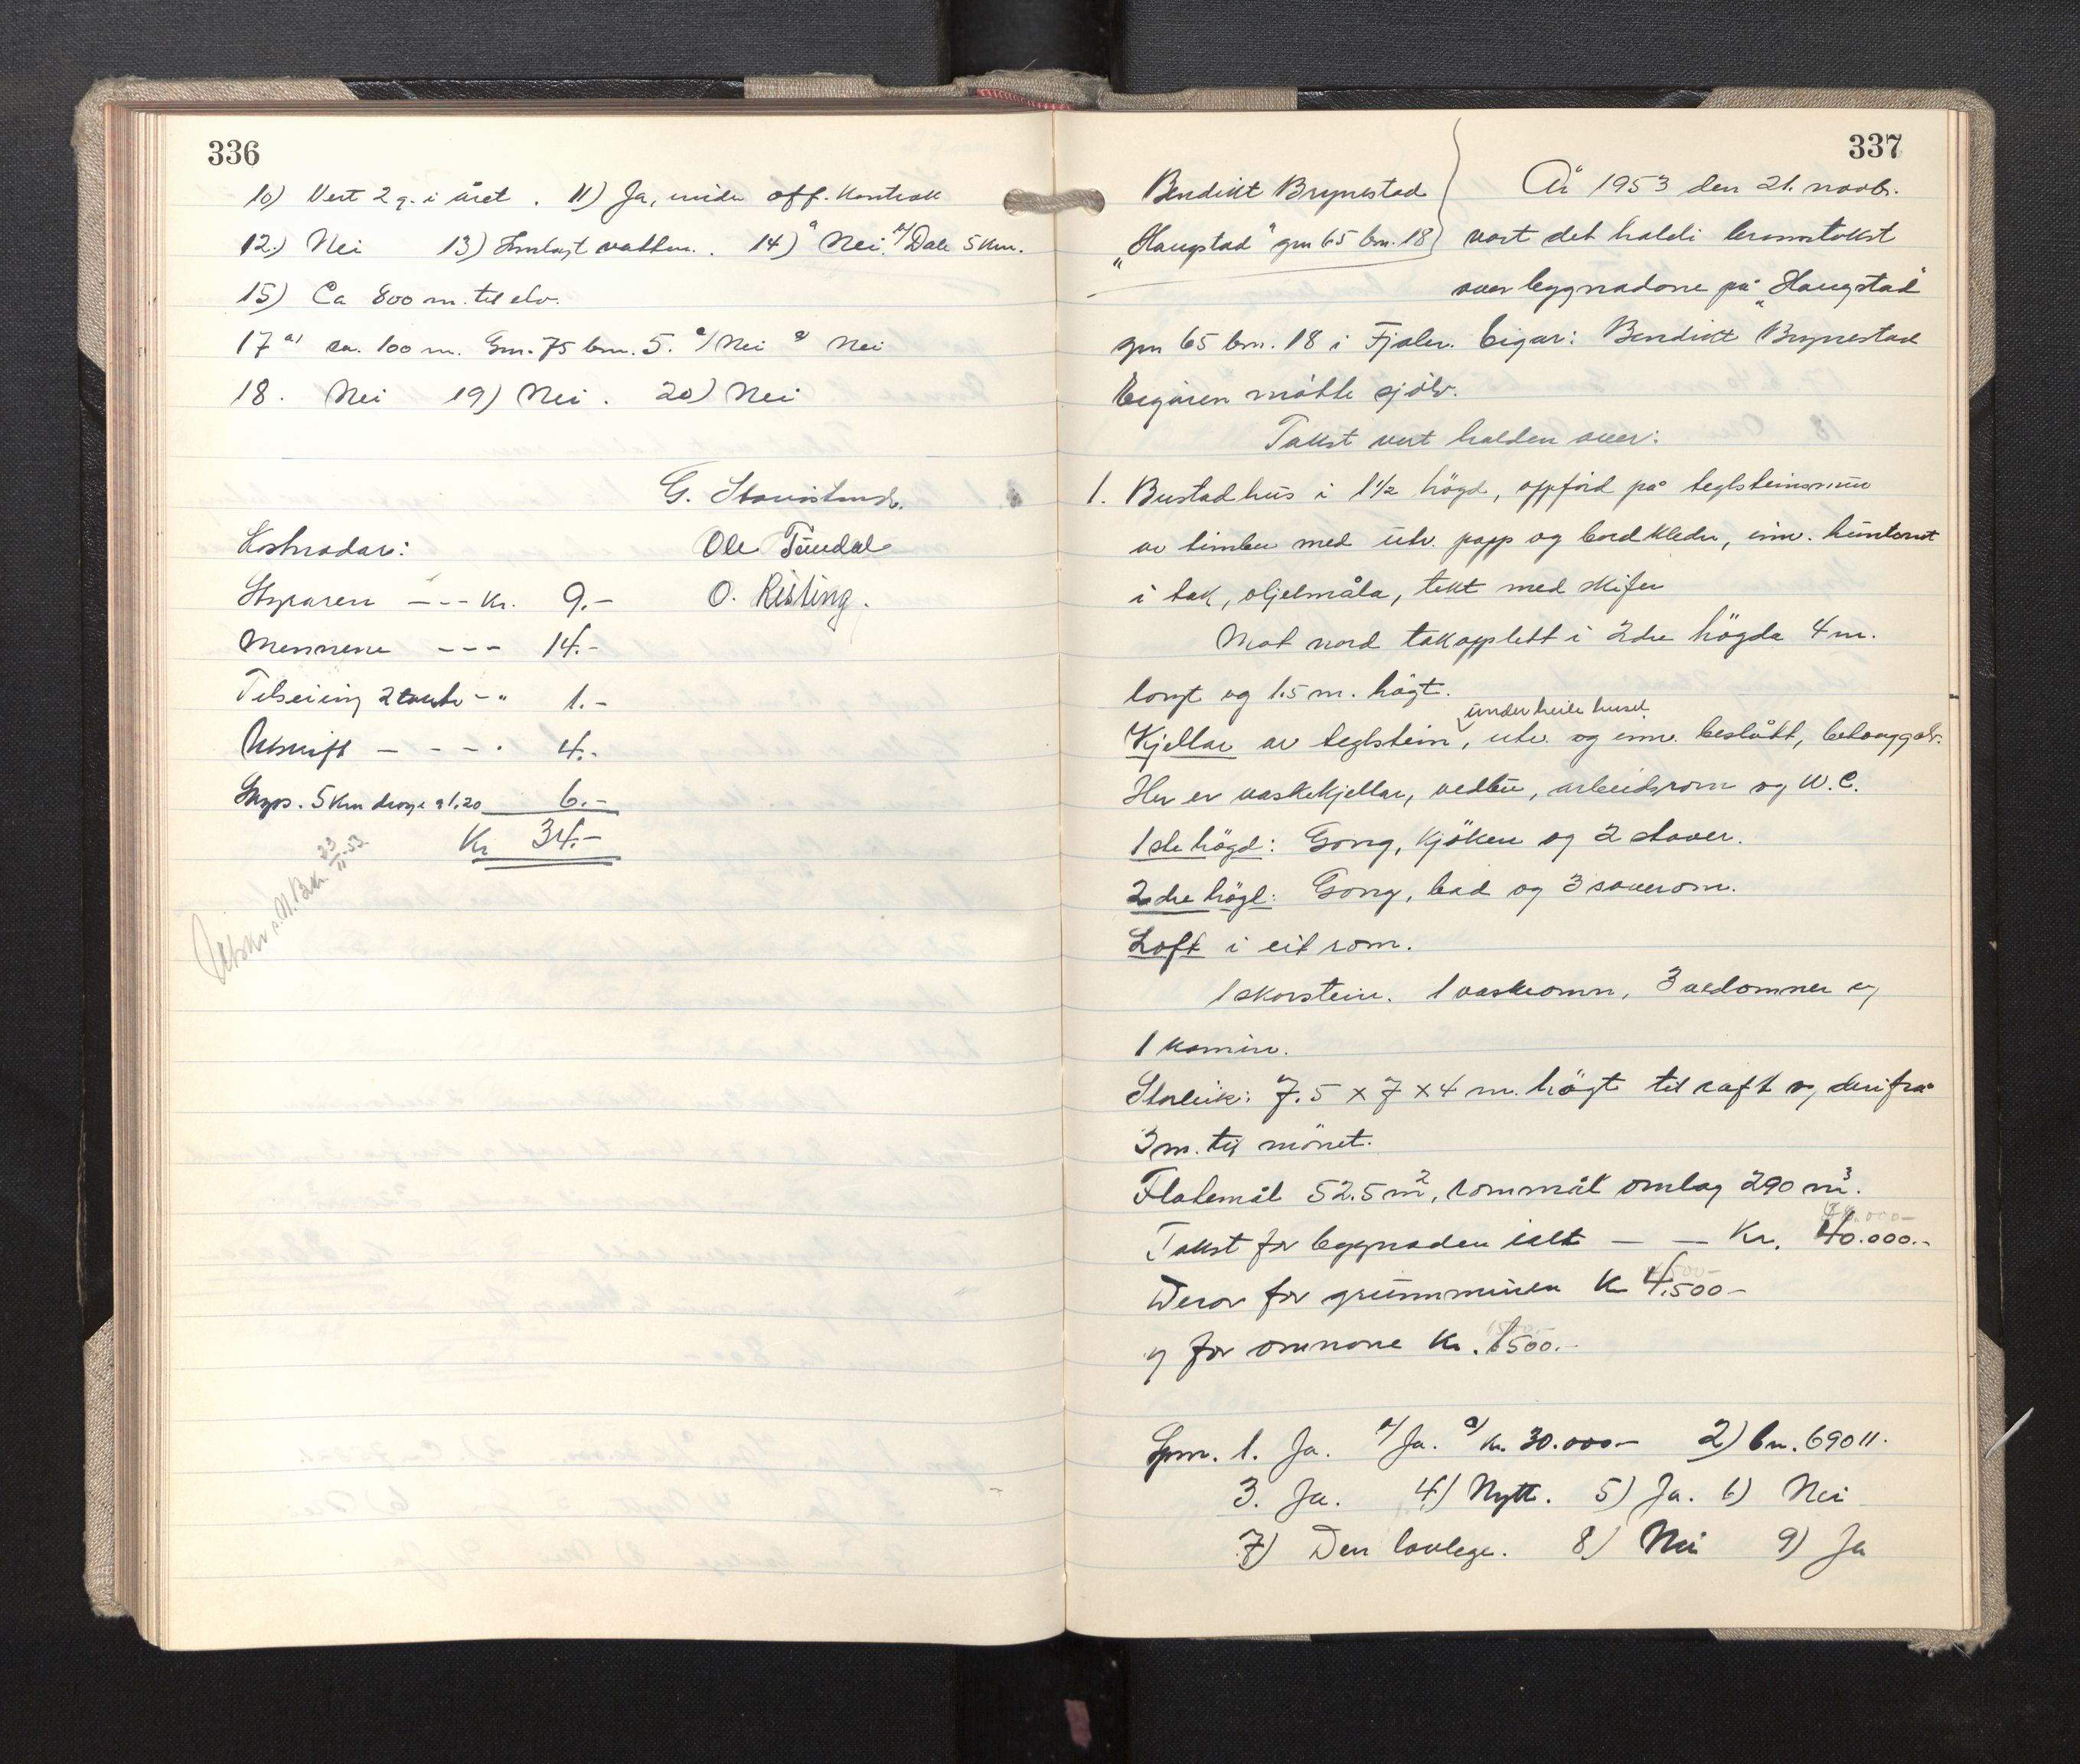 336
10) Vert 2 g. i året. 11) Ja, under off. kontroll
12.) Nei 13) Innlagt vatten. 14) a Nei. b/ Dale 5 km.
15) Ca 800 m. til elv.
17 a) ca. 100 m. Gm. 75 bm. 5. c/ Nei d Nei
18. Nei 19) Nei. 20) Nei
G.
Kostnadar: Ole Tundal
Styraren --- Kr. 9.- O. Risting.
Mennene --- 14.-
Tilseiing 2 - " 1.-
Utskrift - - - . 4.-
Skyss. 5 km drosje a 1.20 6.-
Kr 34.-
Utskr. s. N. Br.k. 23/11-53
337
Bendikt Brynestad År 1953 den 21. novbr.
„Haugstad" gm 65 bm. 18 vart det haldi brannstakst
over bygnadone på „Haugstad"
gm 65 bm. 18 i Fjaler. Eigar: Bendikt Brynestad
Eigaren møtte sjølv.
Takst vert halden over:
1. Bustadhus i 1½ högd, oppförd på teglsteinsmur
av timber med utv. papp og bordkledn, innv. huntonit
i tak, oljelmåla, tekt med skifer
Mot nord takopplett i 2dre högda 4 m.
langt og 1.5 m. högt.
under heile huset
Kjellar av teglstein, utv. og innv. beslått, betonggolv.
Her er vaskekjellar, vedbu, arbeidsrom og W.C.
1ste högd: Gong, kjöken og 2 stover.
2dre högd: Gong, bad og 3 soverom.
Loft i eit rom.
1 skorstein. 1 vaskeomn, 3 vedomner og
1 kamin.
Storleik: 7.5 x 7 x 4 m. högt til raft og derifrå
3 m. til mönet.
Flatemål 52.5 m², rommål omlag 290 m³.
Takst for bygnaden ialt — — Kr. 40.000.-
Derav for grunnmuren Kr 4.500-
og for omnone Kr. 1500.-
Spm. 1. Ja. b/ Ja. c) kr. 30.000.- 2) bn. 69011.
3. Ja. 4) Nytt. 5) Ja. 6) Nei
7) Den lovlege. 8) Nei 9) Ja